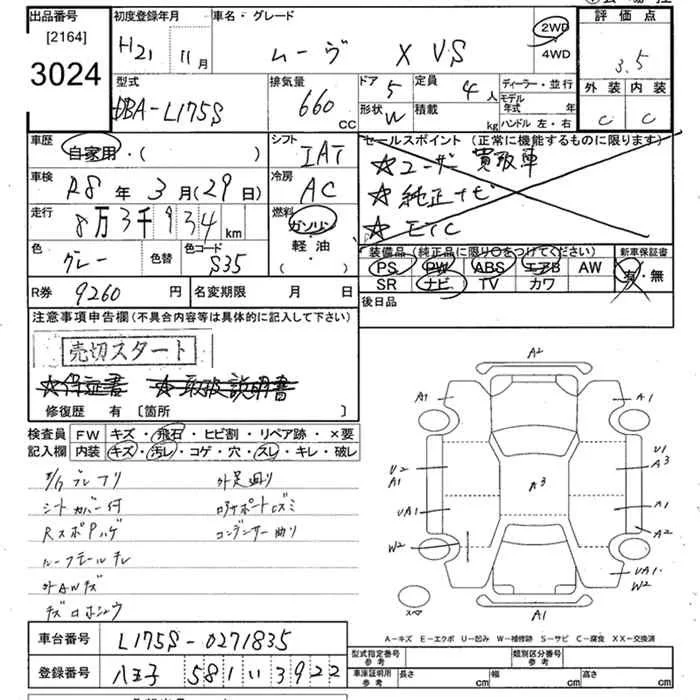 出品番号
[2164]
3024
初度登録年月
H21年 11月
車名・グレード
ムーヴ X VS
2WD
4WD
評価点
3.5
外装 内装
C C
型式
DBA-L175S
排気量
660 CC
ドア 5
形状 W
定員 4人
積載 kg
ディーラー・並行
モデル年式 年
ハンドル 左・右
車歴
自家用・( )
シフト
IAT
セールスポイント (正常に機能するものに限ります)
☆ユーザー買取車
☆純正ナビ
☆ETC
車検
R8年 3月(29日)
冷房
AC
走行
8万3千934km
燃料
ガソリン
軽・油
・( )
色
グレー
色替
色コード
S35
装備品 (純正品に限り〇をつけてください)
PS PW ABS エアB AW
SR ナビ TV カワ
新車保証書
有・無
R券 9260円
名変期限 月 日
後日品
注意事項申告欄(不具合内容等は具体的に記入して下さい)
売切スタート
☆保証書 ☆取扱説明書
修復歴 有 [箇所 ]
検査員
記入欄
FW キズ・飛石・ヒビ割・リペア跡・×要
内装 キズ・汚レ・コゲ・穴・スレ・キレ・破レ
シートカバー付
ルーフモールキレ
外AWキズ
外足廻り
コアサポートキズミ
コンデンサー曲り
A2
A1
A1
U2
A1
UA1
W2
A3
U1
A3
A1
A2
UA1
W2
A1
スペア
A-キズ E-エクボ U-凹み W-補修跡 S-サビ C-腐食 XX-交換済
車台番号
L175S-0271835
登録番号
八王子 581 い 3922
型式指定番号
参考
類別区分番号
参考
車庫証明用
参考
長さ cm
幅 cm
高さ cm